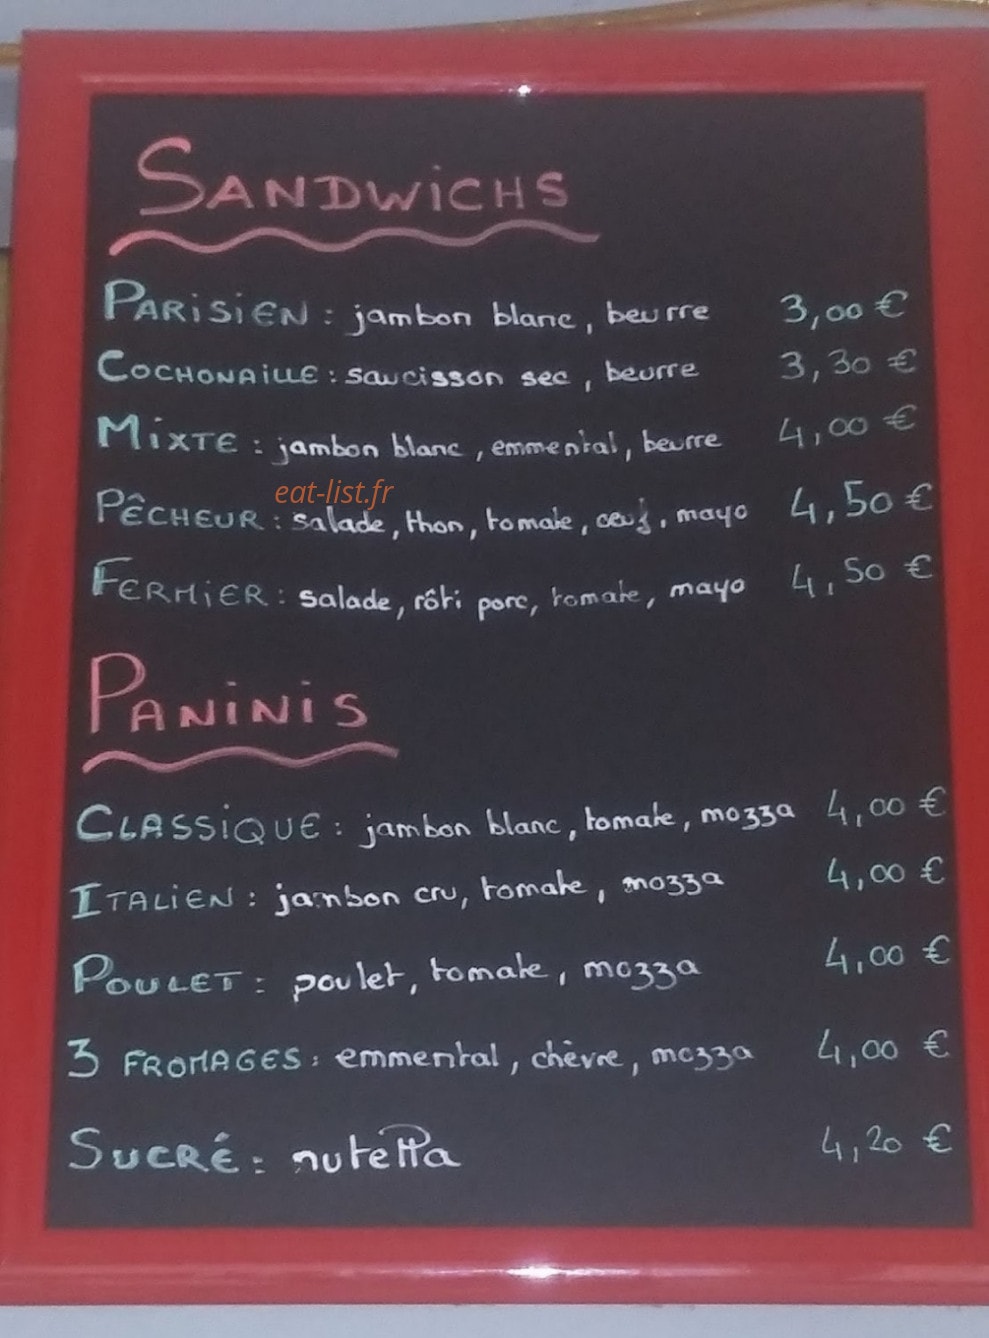 SANDWiCHS
PARiSiEN : jambon blanc, beurre 3,00 €
COCHONAiLLE : saucisson sec, beurre 3,30 €
MiXTE : jambon blanc, emmental, beurre 4,00 €
eat-list.fr
PÊCHEUR : salade, thon, tomate, oeuf, mayo 4,50 €
FERMiER : salade, rôti porc, tomate, mayo 4,50 €
PANiNiS
CLASSiQUE : jambon blanc, tomate, mozza 4,00 €
ITALiEN : jambon cru, tomate, mozza 4,00 €
POULET : poulet, tomate, mozza 4,00 €
3 FROMAGES : emmental, chèvre, mozza 4,00 €
SUCRÉ : nutella 4,20 €